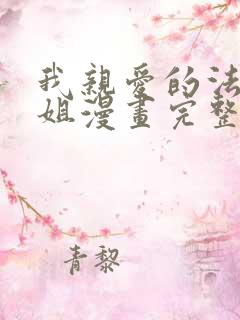 我親愛的法
姐漫畫完整
青黎